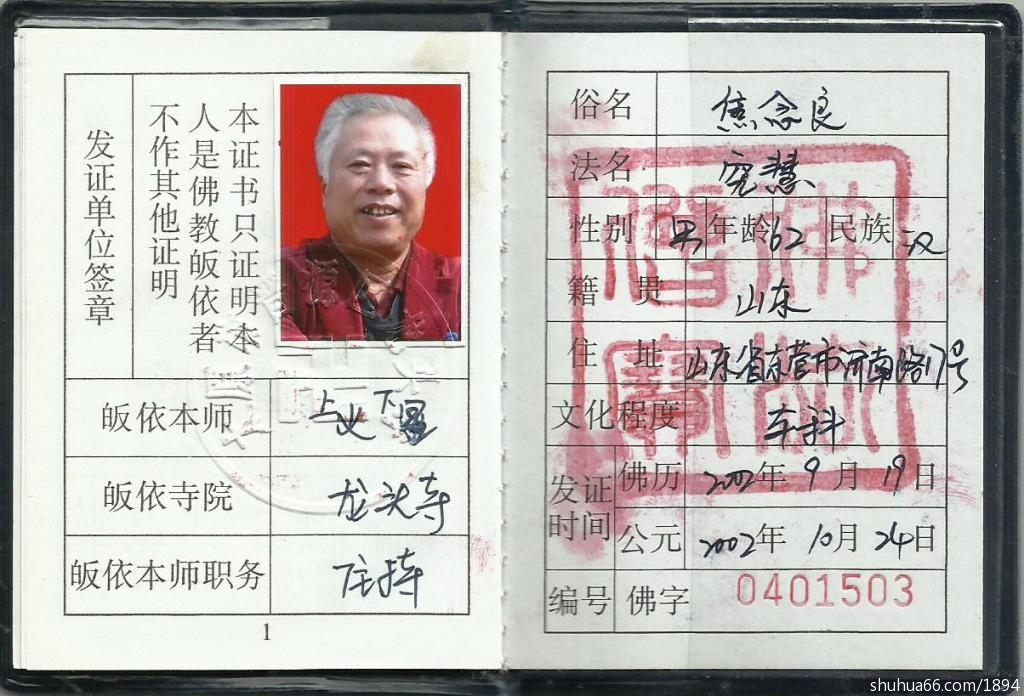 发证单位签章
本证书只证明本
人是佛教皈依者
不作其他证明
皈依本师 上火下星
皈依寺院 龙头寺
皈依本师职务 住持
1
俗名 焦念良
法名 究慧
性别 男 年龄 62 民族 汉
籍贯 山东
住址 山东省东营市济南路17号
文化程度 本科
发证时间 佛历 2002年 9月 19日
公元 2002年 10月 24日
编号 佛字 0401503
shuhua66.com/1894